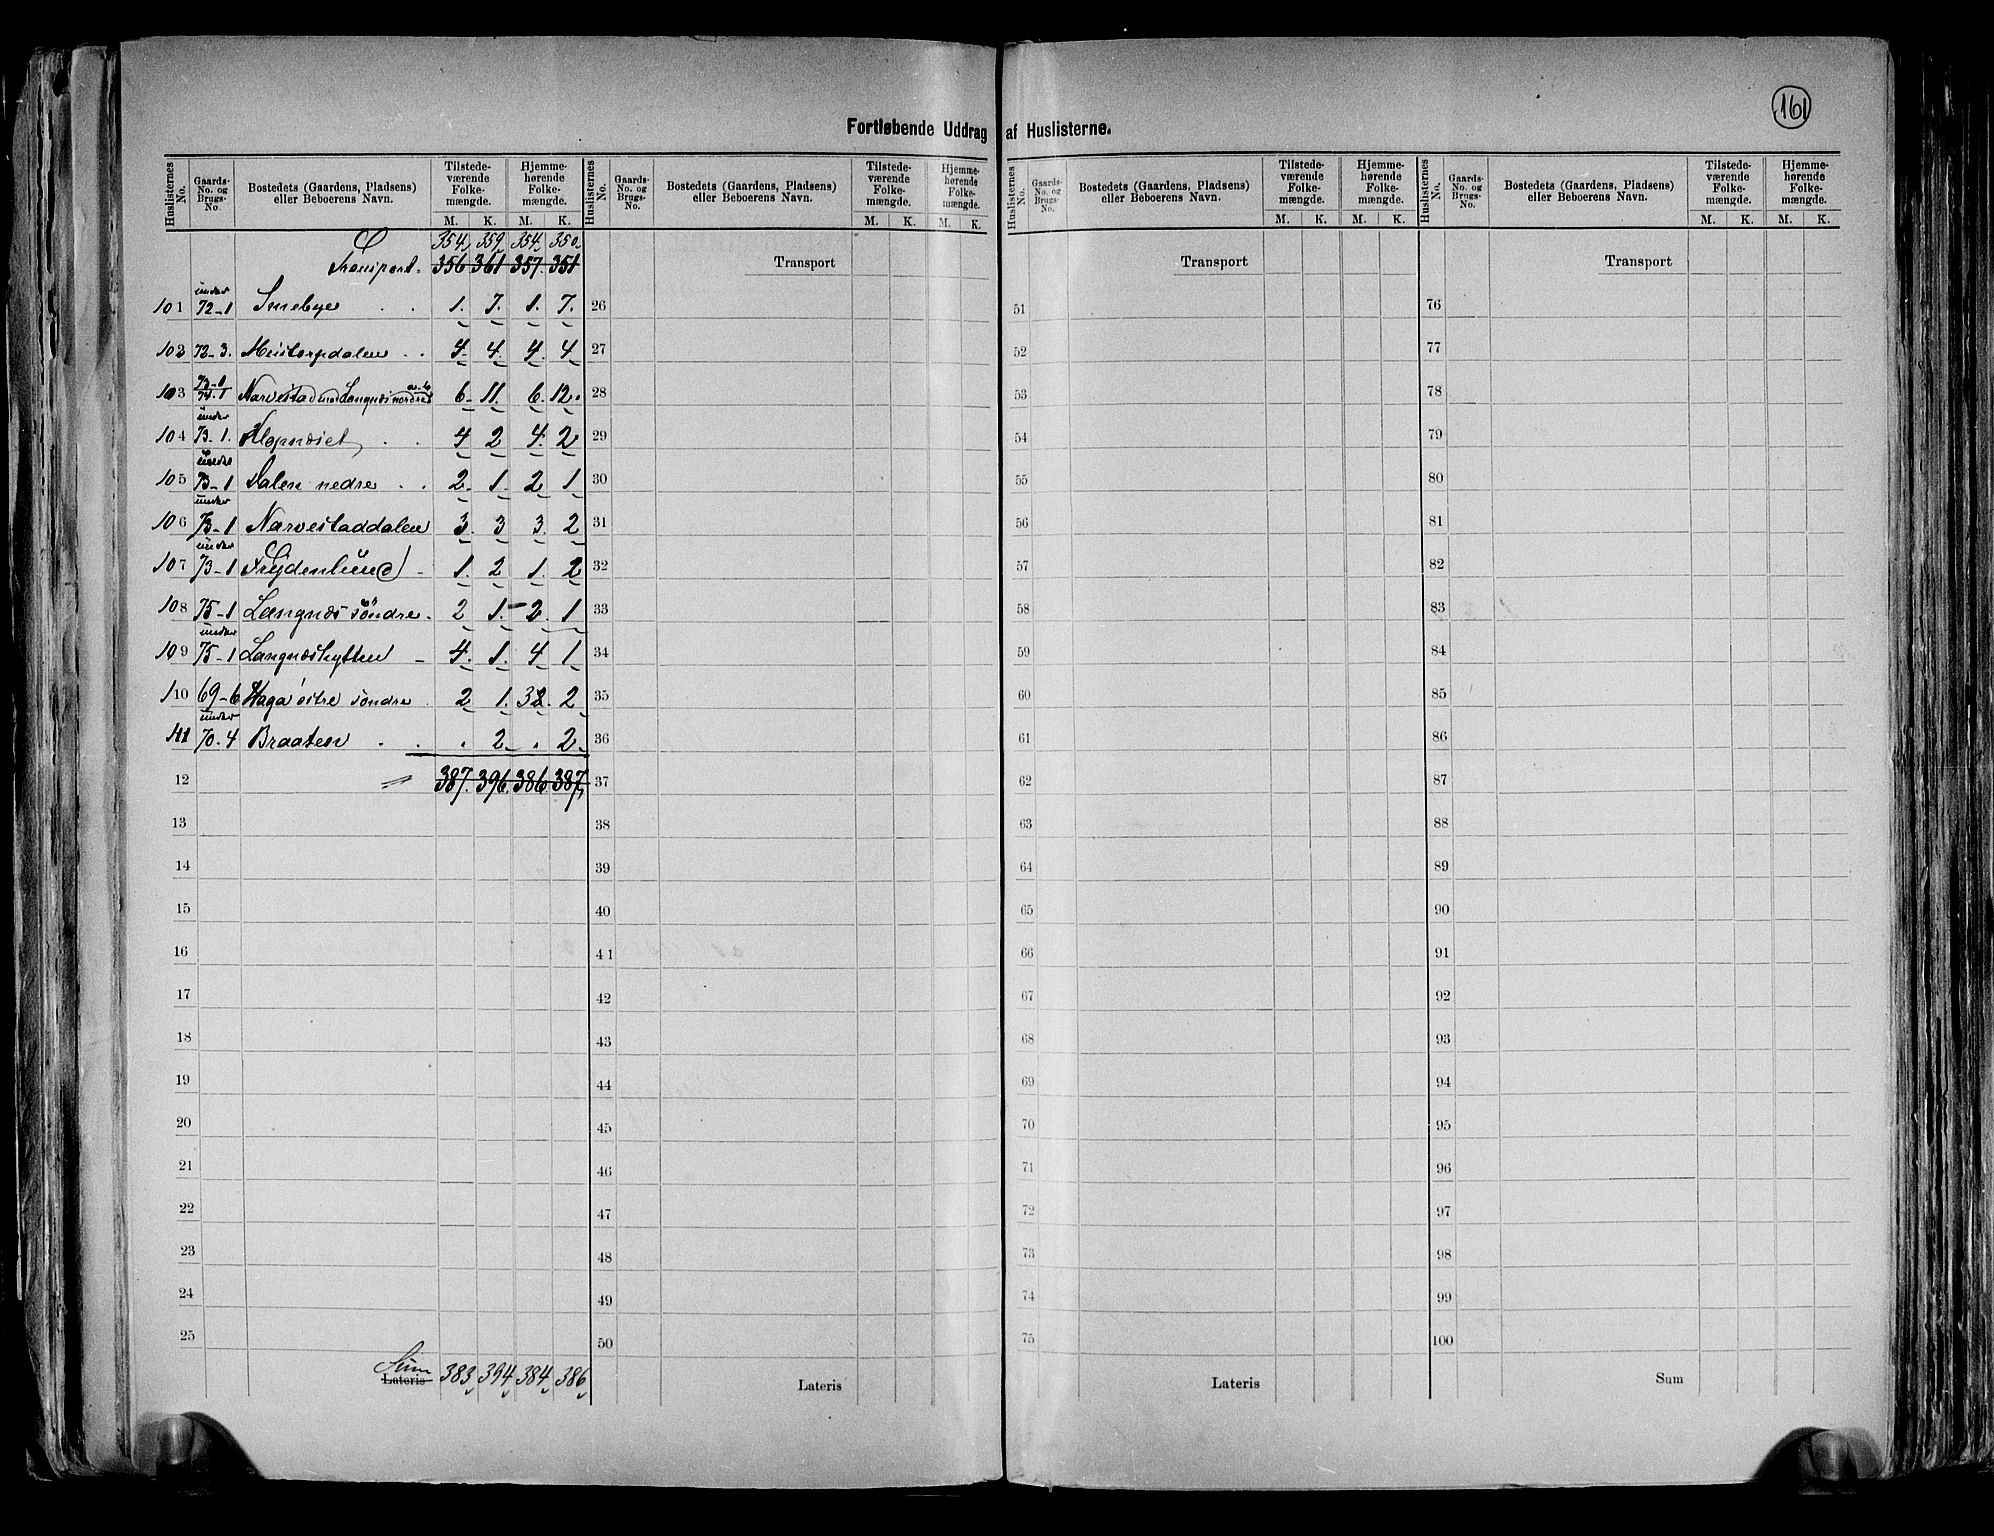 161
Fortløbende Uddrag af Huslisterne.
Huslisternes No. | Gaards-No. og Brugs-No. | Bostedets (Gaardens, Pladsens) eller Beboerens Navn. | Tilstedeværende Folkemængde. M. K. | Hjemmehørende Folkemængde. M. K. | Huslisternes No. | Gaards-No. og Brugs-No. | Bostedets (Gaardens, Pladsens) eller Beboerens Navn. | Tilstedeværende Folkemængde. M. K. | Hjemmehørende Folkemængde. M. K. | Huslisternes No. | Gaards-No. og Brugs-No. | Bostedets (Gaardens, Pladsens) eller Beboerens Navn. | Tilstedeværende Folkemængde. M. K. | Hjemmehørende Folkemængde. M. K. | Huslisternes No. | Gaards-No. og Brugs-No. | Bostedets (Gaardens, Pladsens) eller Beboerens Navn. | Tilstedeværende Folkemængde. M. K. | Hjemmehørende Folkemængde. M. K.
354. 359. 354. 350.
Transport. 356 361 357. 351 Transport Transport Transport
under
101 72-1 Smebye 1. 7. 1. 7. 26 51 76
102 72-3. Meistorpdalen 4. 4. 4. 4 27 52 77
73-1
103 74.1 Narvestad med Langnæs nordre 6. 11. 6. 12. 28 53 78
under
104 73-1. Klopnæset 4 2 4. 2 29 54 79
under
105 73-1 Dalen nedre 2. 1. 2 1 30 55 80
under
106 73-1 Narvestaddalen 3. 3 3. 2 31 56 81
under
107 73-1 Frydenlund 1. 2 1. 2 32 57 82
108 75-1 Langnæs söndre. 2 1. 2. 1 33 58 83
under
109 75-1 Langnæshytten 4. 1. 4 1 34 59 84
110 69-6 Haga östre söndre 2 1. 32. 2 35 60 85
under
111 70.4 Braaten . 2. . 2. 36 61 86
12 387. 396. 386 387, 37 62 87
13 38 63 88
14 39 64 89
15 40 65 90
16 41 66 91
17 42 67 92
18 43 68 93
19 44 69 94
20 45 70 95
21 46 71 96
22 47 72 97
23 48 73 98
24 49 74 99
25 50 75 100
Sum
Lateris 383 394 384 386 Lateris Lateris Sum